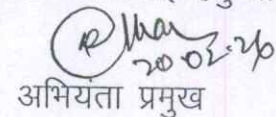 20.02.26
अभियंता प्रमुख